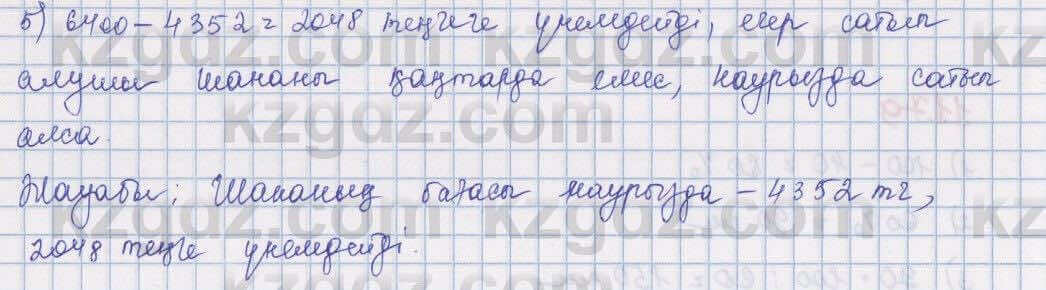 5) 6400 - 4352 = 2048 теңгеге үнемдейді, егер сатып
алушы шананы қаңтарда емес, наурызда сатып
алса.
Жауабы: Шананың бағасы наурызда - 4352 тг,
2048 теңге үнемдейді.
kzgdz.com